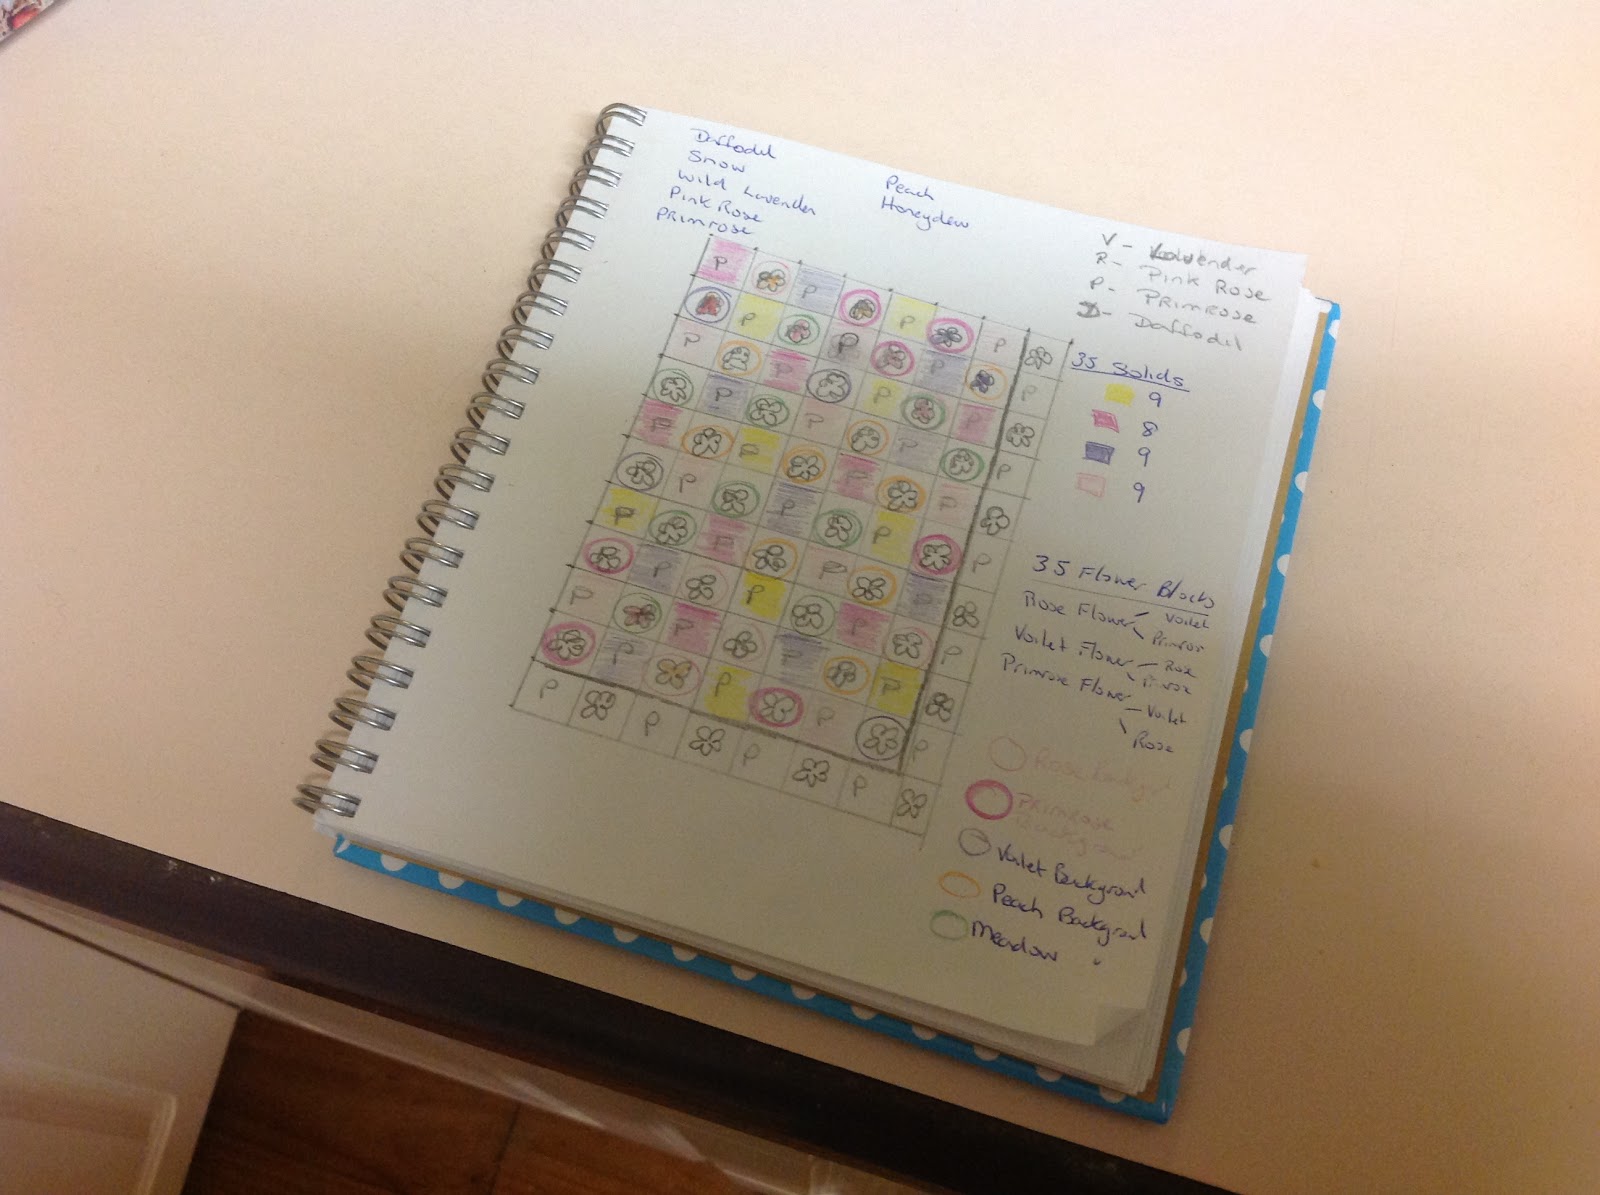 Daffodil
Snow
Wild Lavender
Pink Rose
PRimrose
Peach
Honeydew
V - Lavender
R - Pink Rose
P - PRimrose
D - Daffodil
35 Solids
9
8
9
9
P P P P
P P P
P P P P
P P P P
P P P
P P P P
P P P P
P P P
P P P P
P P P P
P P P
P P P P
P P P P
35 Flower Blocks
Rose Flower - Voilet
Primros
Voilet Flower - Rose
Primrose Flower - Voilet
Rose
Rose
PRimrose
Background
Voilet Background
Peach Background
Meadow "